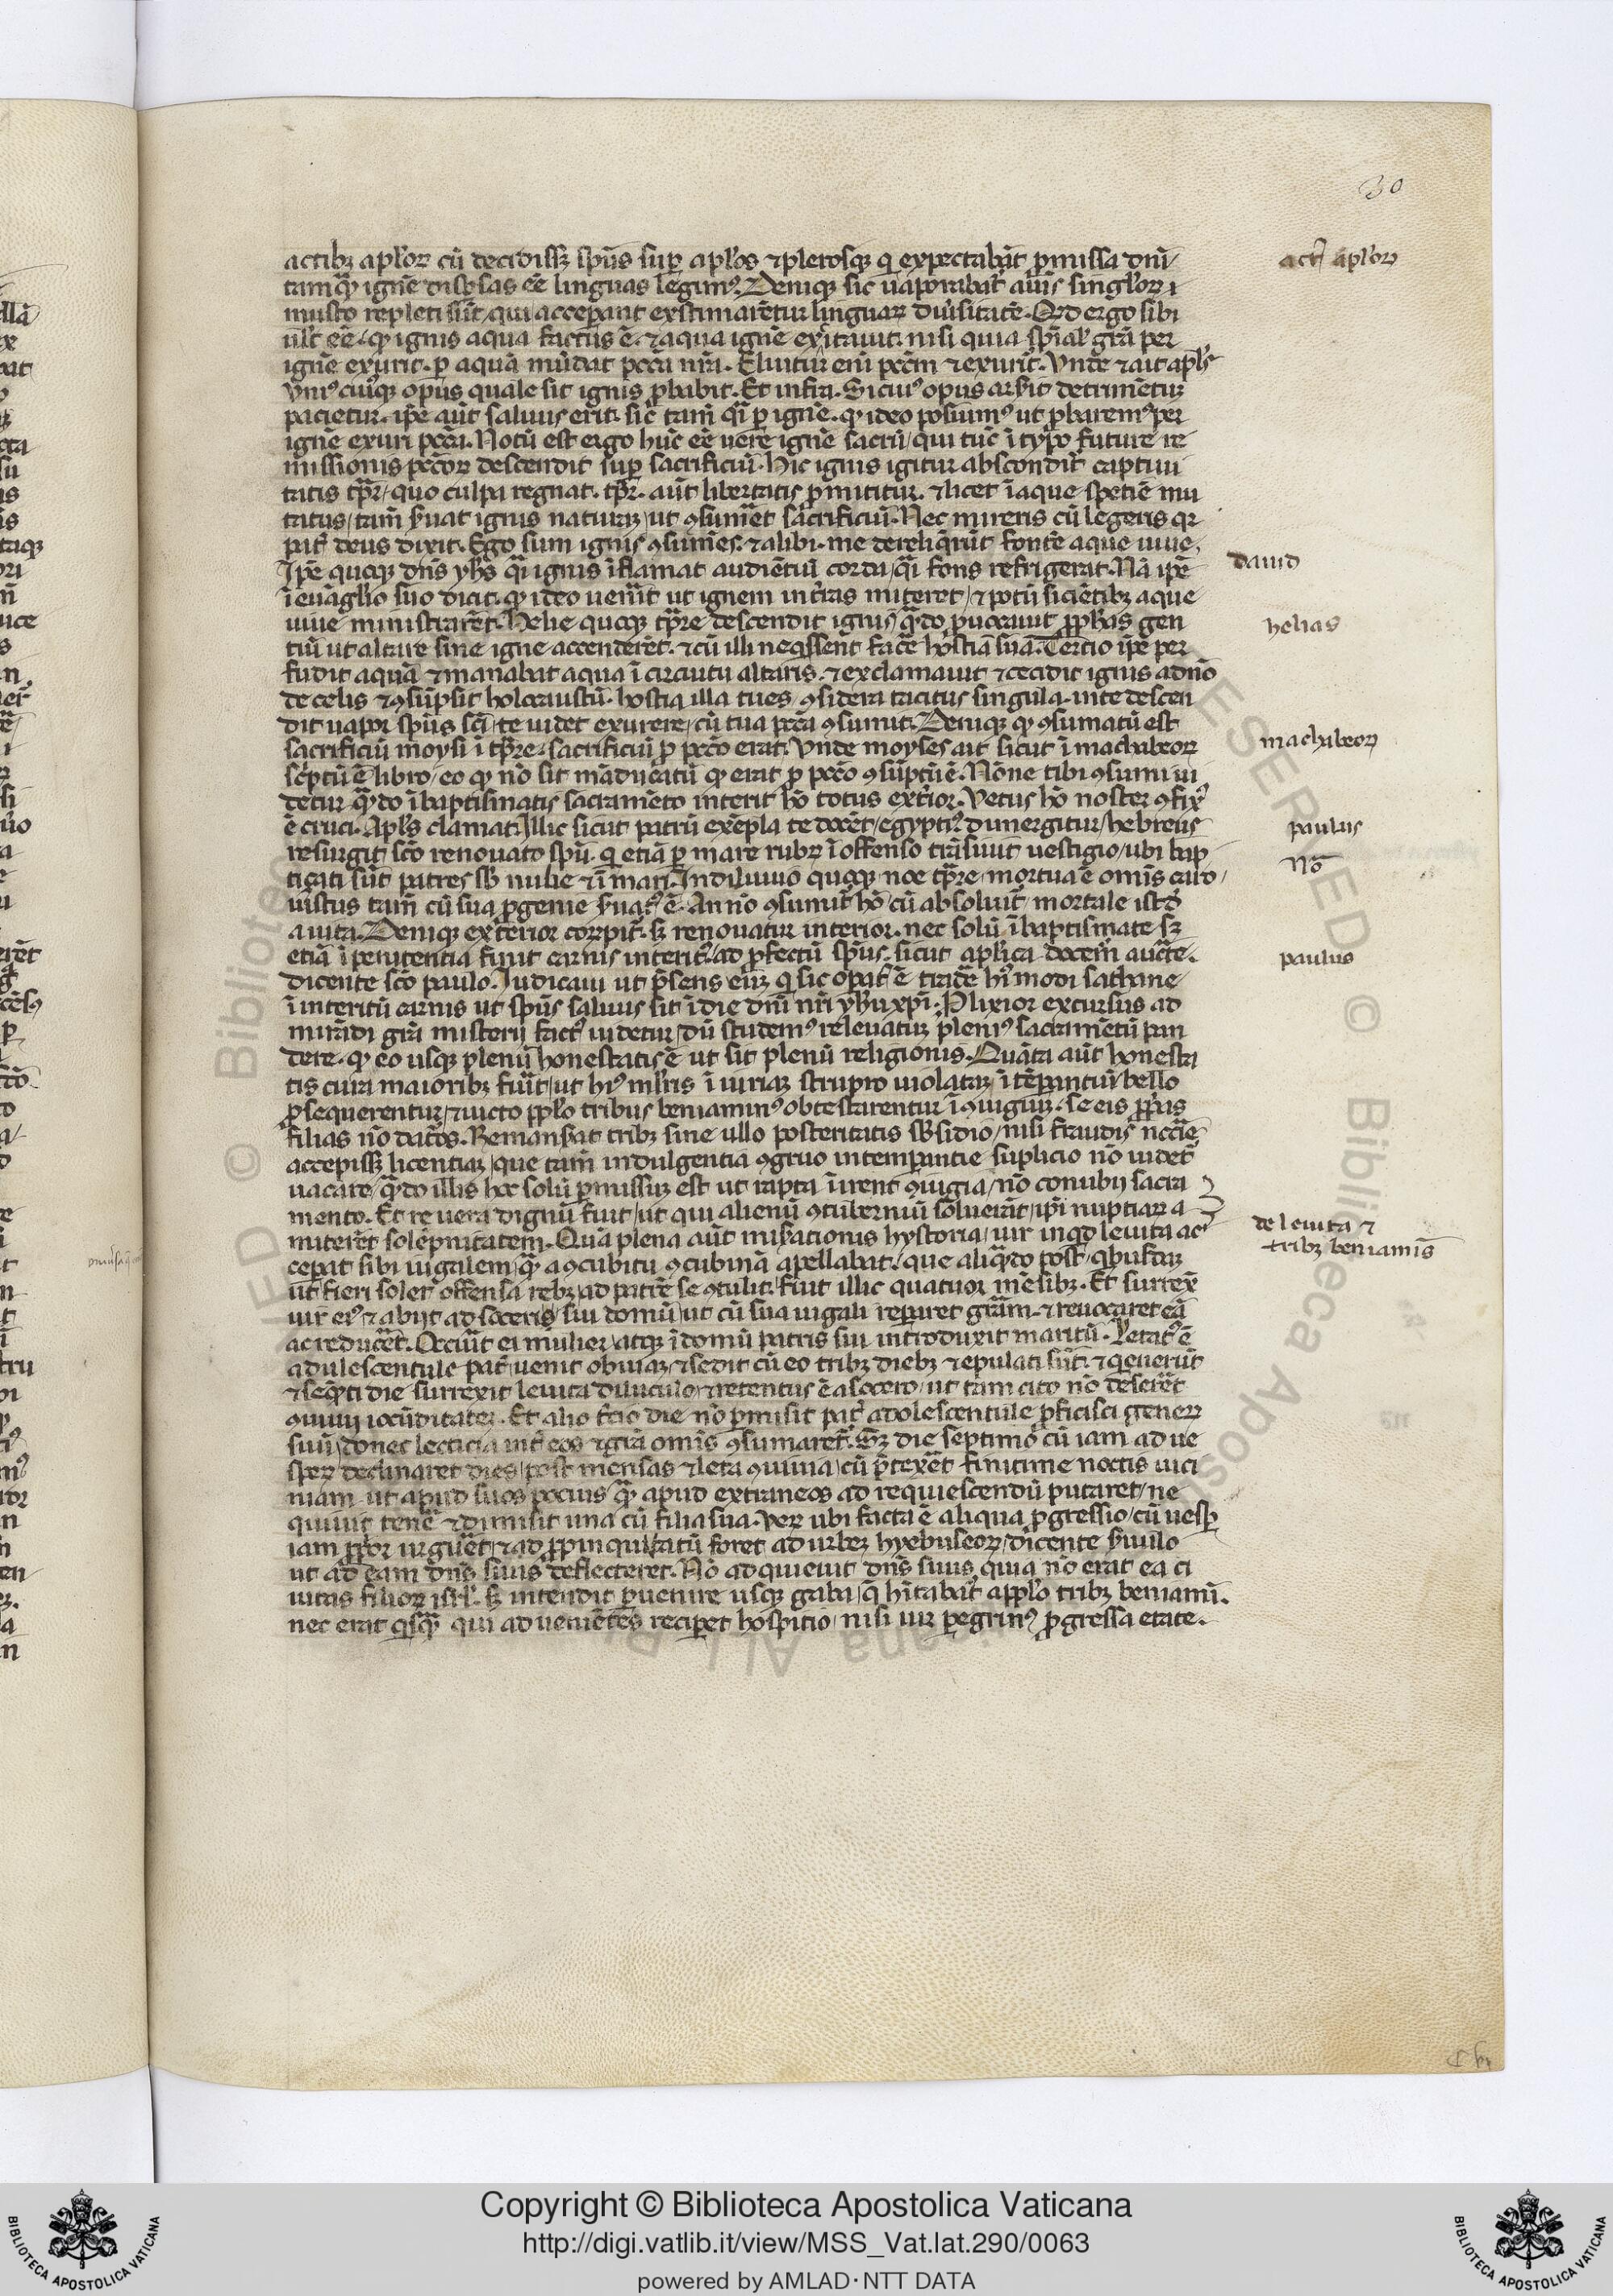 30
actibꝫ apl'oꝝ cū decidissꝫ sp̄us suꝑ apl'os ⁊ plerosqꝫ q̇ expectabāt ꝓmissa dn̄i
tamqᷓ ignē disꝑsas eē linguas legimꝰ. Deniqꝫ sic uaporabat᷑ aīus singl'oꝝ ı
musto repleti sūt qui acceꝑant exstimarētur linguaꝝ diu'sitatē. Qd ergo sibi
ult eē ꝙ ignis aqua factus ē ⁊ aqua ignē excitauit nisi quia sp̄ial' grā per
ignē exurit. ꝑ aquā mūdat pccā nr̄a. Eluitur eni pccm ⁊ exurit᷑. Vnde ⁊ ait apl's
Vniꝰ cuiꝰqꝫ opus quale sit ignis ꝓbabit. Et infra. Si cuiꝰ opus arsit detrimētuꝫ
pacietur. ip̄e aūt saluus erit. sic tam̄ qᷓi ꝑ ignē. ꝙ ideo posuimꝰ ut ꝓbaremꝰ per
ignē exuri pccā. Notū est ergo hūc eē uere ignē sacrū qui tūc ī typo future re
missionis pccoꝝ descendit suꝑ sacrificiū. Hic ignis igitur abscondit᷑ captiui
tatis tp̄r quo culpa regnat. tp̄r aūt libertatis ꝓmititur. ⁊ licet ī aque spetiē mu
tatus tam̄ s̓uat ignis naturaꝫ ut ꝯsumēt sacrificiū. Nec mireris cū legeris qꝛ
pat᷑ deus dixit. Ego sum ignis ꝯsumēs. ⁊ alibi. me dereliq̄rūt fontē aque uiue.
Ip̄e quoqꝫ dn̄s yh̄s qᷓi ignis īflamat audiētiū corda qᷓi fons refrigerat. Nā ip̄e
ī euāgl'io suo dicit. ꝙ ideo uenīt ut ignem in t̓ras miteret ⁊ potū siciētibꝫ aque
uiue ministraret. Helie quoqꝫ tp̄re descendit ignis qᷓdo ꝓuocauit ꝓph'as gen
tiū ut altare sine igne accenderēt. ⁊ cū illi neq̇ssent facē hostiā suā. Tercio ip̄e per
fudit aquā ⁊ manabat aqua ī circuitu altaris. ⁊ exclamauit ⁊ cecidit ignis a dn̄o
de celis ⁊ ꝯsūpsit holocaustū. hostia illa tu es. ꝯsidera tacitus singula. in te descen
dit uapor sp̄us sc̄i te uidet᷑ exurere cū tua pccā ꝯsumit. Deniqꝫ ꝙ ꝯsumatū est
sacrificiū moysi ī tp̄re. sacrificiū ꝓ pccō erat. Vnde moyses ait sicut ī machabeoꝝ
sc̓ptū ē libro eo ꝙ nō sit māducatū ꝙ erat ꝓ pccō ꝯsūptū ē. Nōne tibi ꝯsumi ui
detur qᷓdo ī baptismatis sacramēto interit hō totus ext̓ior. Vetus hō noster ꝯfixꝰ
ē cruci. Apl's clamat. Illic sicut patrū exēpla te docēt egyptiꝰ dimergitur hebreus
resurgit sc̄o renouato spū. q̇ etiā ꝑ mare rubꝝ īoffenso trāsiuit uestigio ubi bap
tiçati sūt patres sb̓ nube ⁊ ī mari. In diluuio quoqꝫ noe tp̄re mortua ē omīs caro
iustus tam̄ cū sua ꝓgenie s̓uatꝰ ē. An nō ꝯsumit᷑ hō cū absoluit᷑ mortale istd̓
a uita. Deniqꝫ exterior coꝛꝛpit᷑. sꝫ renouatur interior. nec solū ī baptismate sꝫ
etiā ī penitentia funt carnis interitꝰ ad ꝓfectū sp̄us. sicut apl'ica docem̄ auctē.
dicente sc̄o paulo. Iudicaui ut p̄sens eūꝫ q̇ sic opatꝰ ē tradē hꝰmodi sathane
ī interitū carnis ut sp̄us saluus sit ī die dn̄i nr̄i yh̄u xp̄i. Plixior excursus ad
mirādi grā misterij factꝰ uidetur dū studemꝰ releuatuꝫ pleniꝰ sacramētū pan
dere. ꝙ eo usqꝫ plenū honestatis ē ut sit plenū religionis. Quāta aūt honesta
tis cura maioribꝫ fuit ut hꝰ mlr̄is ī iuriaꝫ strupro uiolataꝫ ī tēꝑantiū bello
ꝓsequerentur ⁊ uicto ppl'o tribus beniaminꝰ obtestarentur ī ꝯiugiuꝫ. se eis ꝓp̓as
filias nō datos. Remanserat tribꝫ sine ullo posteritatis sb̓sidio nisi fraudis ncc̄ie
accepissꝫ licentiaꝫ que tam̄ indulgentia ꝯgruo intemꝑantie suplicio nō uidet᷑
uacare qᷓdo illis hoc solū ꝑmissuꝫ est ut rapta īirent ꝯiugia nō conubij sacra
mento. Et re uera dignū fuit ut qui alienū ꝯtuberniū soluerāt ip̄i nuptiaꝝ a
miterēt solēpnitatem. Quā plena aūt miserationis hystoria uir inqd leuita acꝰ
ceperat sibi iugalem qᷓ a ꝯcubitu ꝯcubinā apellabat. que aliqᷓdo post q̇busdaꝫ
ut fieri solet offensa rebꝫ ad patrē se ꝯtulit. fuit illic quatuor mēsibꝫ. Et surrex̄
uir eiꝰ ⁊ abijt ad soceris sui domū ut cū sua iugali reparet grām. ⁊ reuocaret eā
ac reducēt. Occurit ei mulier atqꝫ ī domū patris sui introduxit maritū. Letatꝰ ē
adulescentule pat᷑ uenit obuiaꝫ ⁊ sedit cū eo tribꝫ diebꝫ ⁊ epulati sūt. ⁊ q̇euerūt
⁊ seq̄nti die surrexit leuita diluculo ⁊ retentus ē a socero ut tam cito nō deserēt
ꝯuiuij iocūditateꝫ. Et alio t̓cio die nō ꝑmisit pat᷑ adolescentule ꝓficisci generꝫ
suū donec lecticia int̓ eos ⁊ grā omīs ꝯsumaret᷑. Sꝫ die septimo cū iam ad ue
sꝑeꝝ declinaret dies post mensas ⁊ leta ꝯuiuia cū p̄texēt finitime noctis uici
niam ut apud suos pocius qᷓ apud extraneos ad requiescendū putaret ne
quiuit tenē ⁊ dimisit una cū filia sua. Veꝝ ubi facta ē aliqua ꝓgressio cū uesꝑ
iam ꝓp̓or urguēt ⁊ ad ꝓpinquitatū foret ad urbeꝫ hyebuseoꝝ dicente s̓uulo
ut ad eam dn̄s suus deflecteret. Nō adquieuit dn̄s suus quia nō erat ea ci
uitas filioꝝ isr̄l. sꝫ intendit ꝑuenire usqꝫ gaba q̄ h̄itabat᷑ a ppl'o tribꝫ beniami.
nec erat q̇sqᷓ qui aduenietēs reciꝑet hospitio nisi uir ꝑegrinꝰ ꝓgressa etate.
act' apl'oꝝ
dauid
helias
machabeoꝝ
paulus
Nō
paulus
de leuita ⁊
tribꝫ beniamis̄
Copyright © Biblioteca Apostolica Vaticana
http://digi.vatlib.it/view/MSS_Vat.lat.290/0063
powered by AMLAD·NTT DATA
BIBLIOTECA APOSTOLICA VATICANA
BIBLIOTECA APOSTOLICA VATICANA